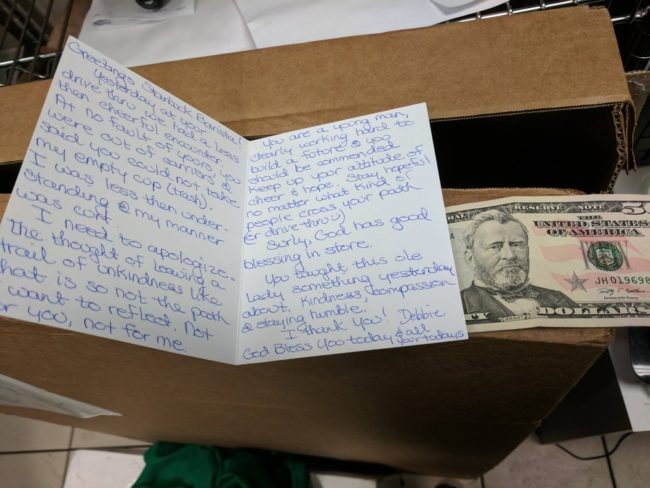 Greetings Starbuck Barista,
Yesterday at your
drive thru we had a less
then cheerful encounter.
At no fault of yours, you
were out of banners &
said you could not take
my empty cup (trash).
I was less then under-
standing & my manner
was curt.
I need to apologize-
The thought of leaving a
trail of unkindness like
that is so not the path
I want to reflect. Not
for you, not for me.
You are a young man,
clearly working hard to
build a future & you
should be commended.
Keep up your attitude of
cheer & hope. Stay hopeful
no matter what kind of
people cross your path
(or drive thru :)
Surly, God has good
blessing in store.
You taught this ole
lady something yesterday
about, kindness, compassion
& staying humble.
I thank you! Debbie
God Bless You today & all
your todays
RESERVE NOTE
THE
UNITED STATES
JH 019698
DOLLARS